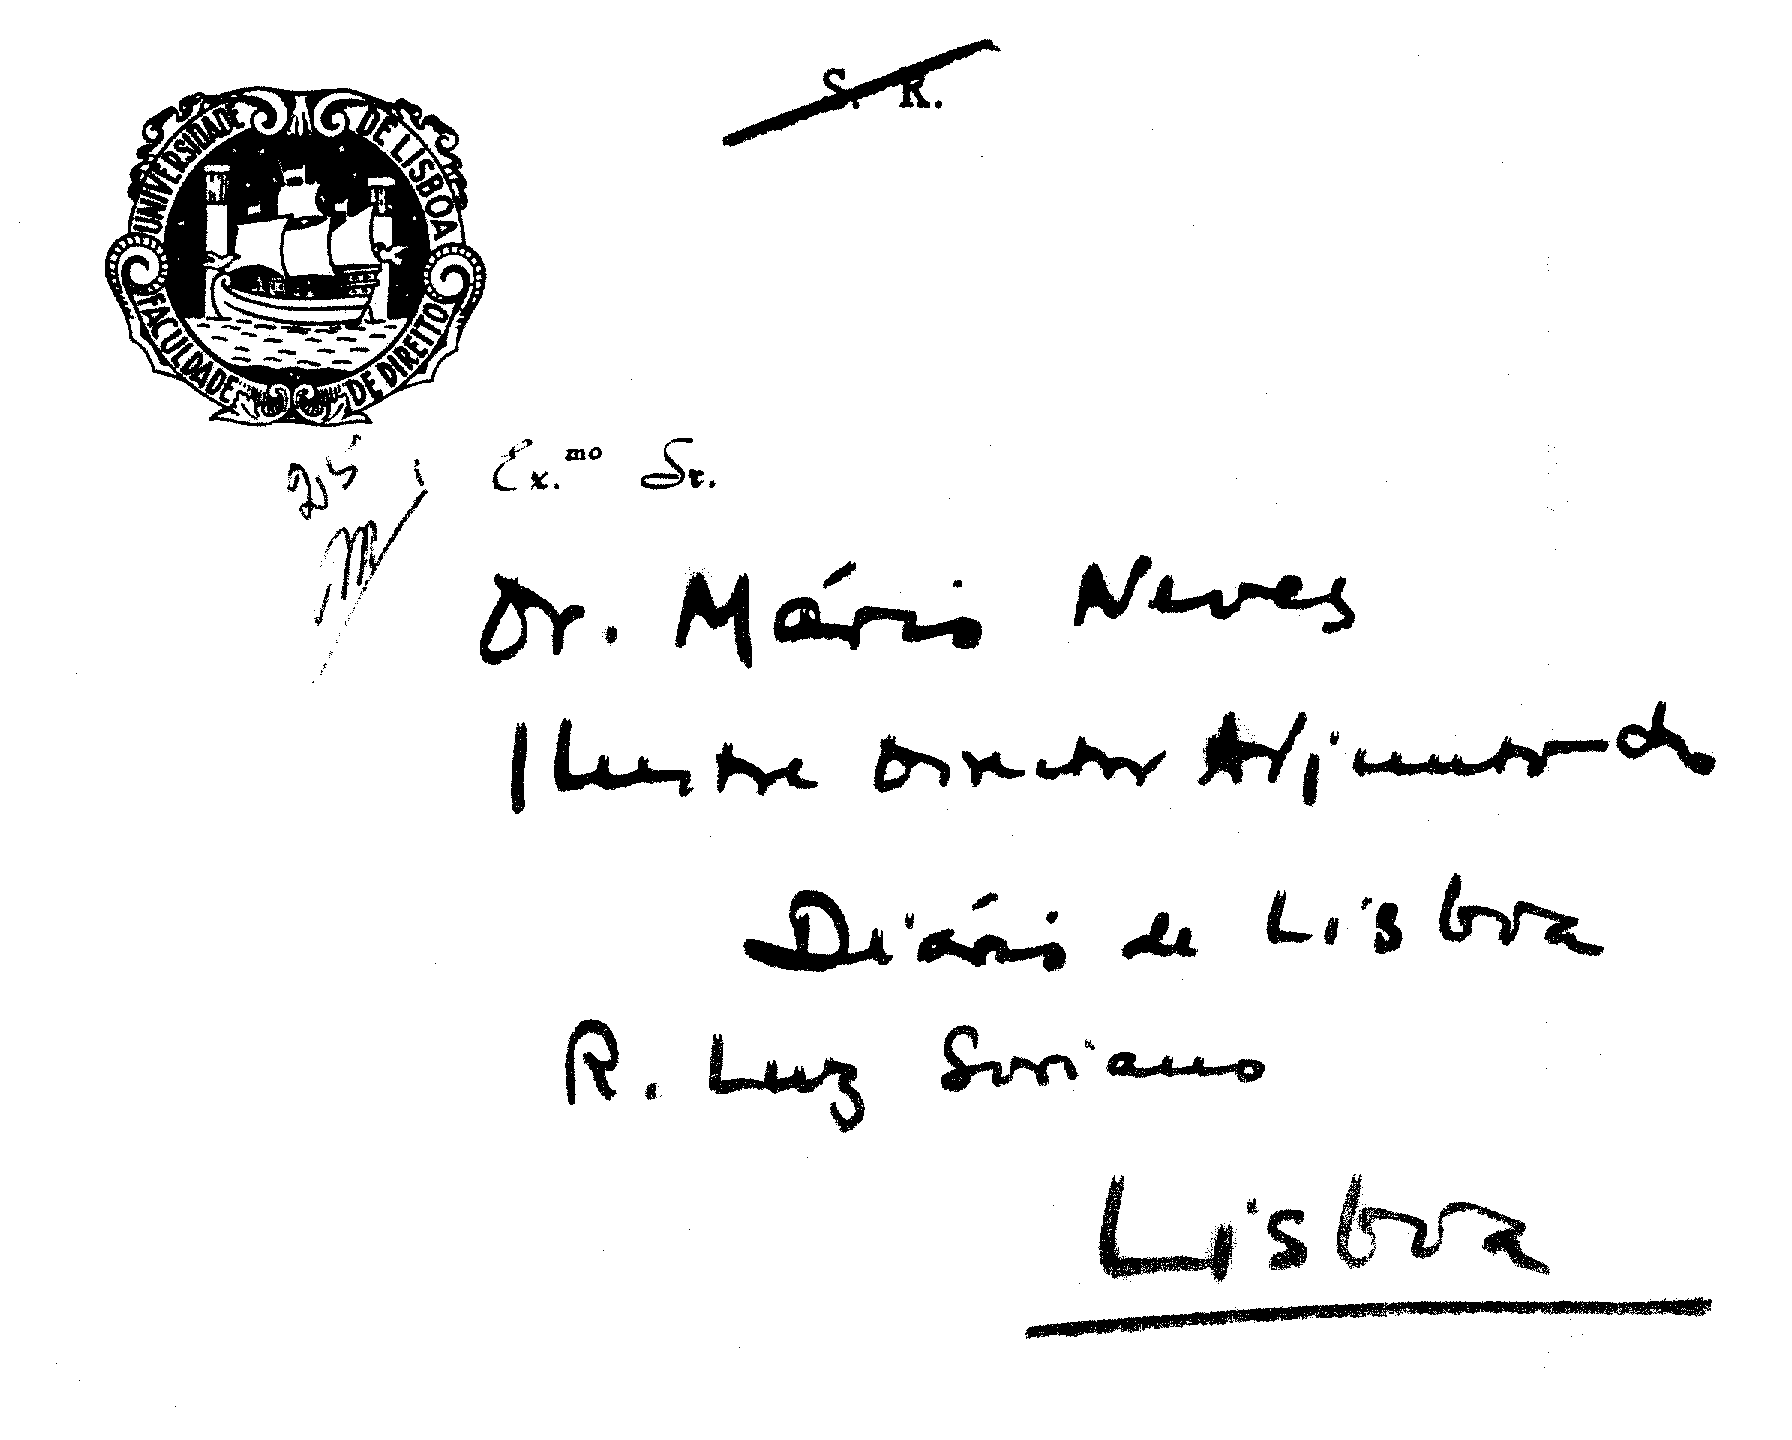 S. R.
UNIVERSIDADE DE LISBOA
FACULDADE DE DIREITO
Ex.mo Sr.
Dr. Mário Neves
Ilustre Director Adjunto do
Diário de Lisboa
R. Luz Soriano
Lisboa